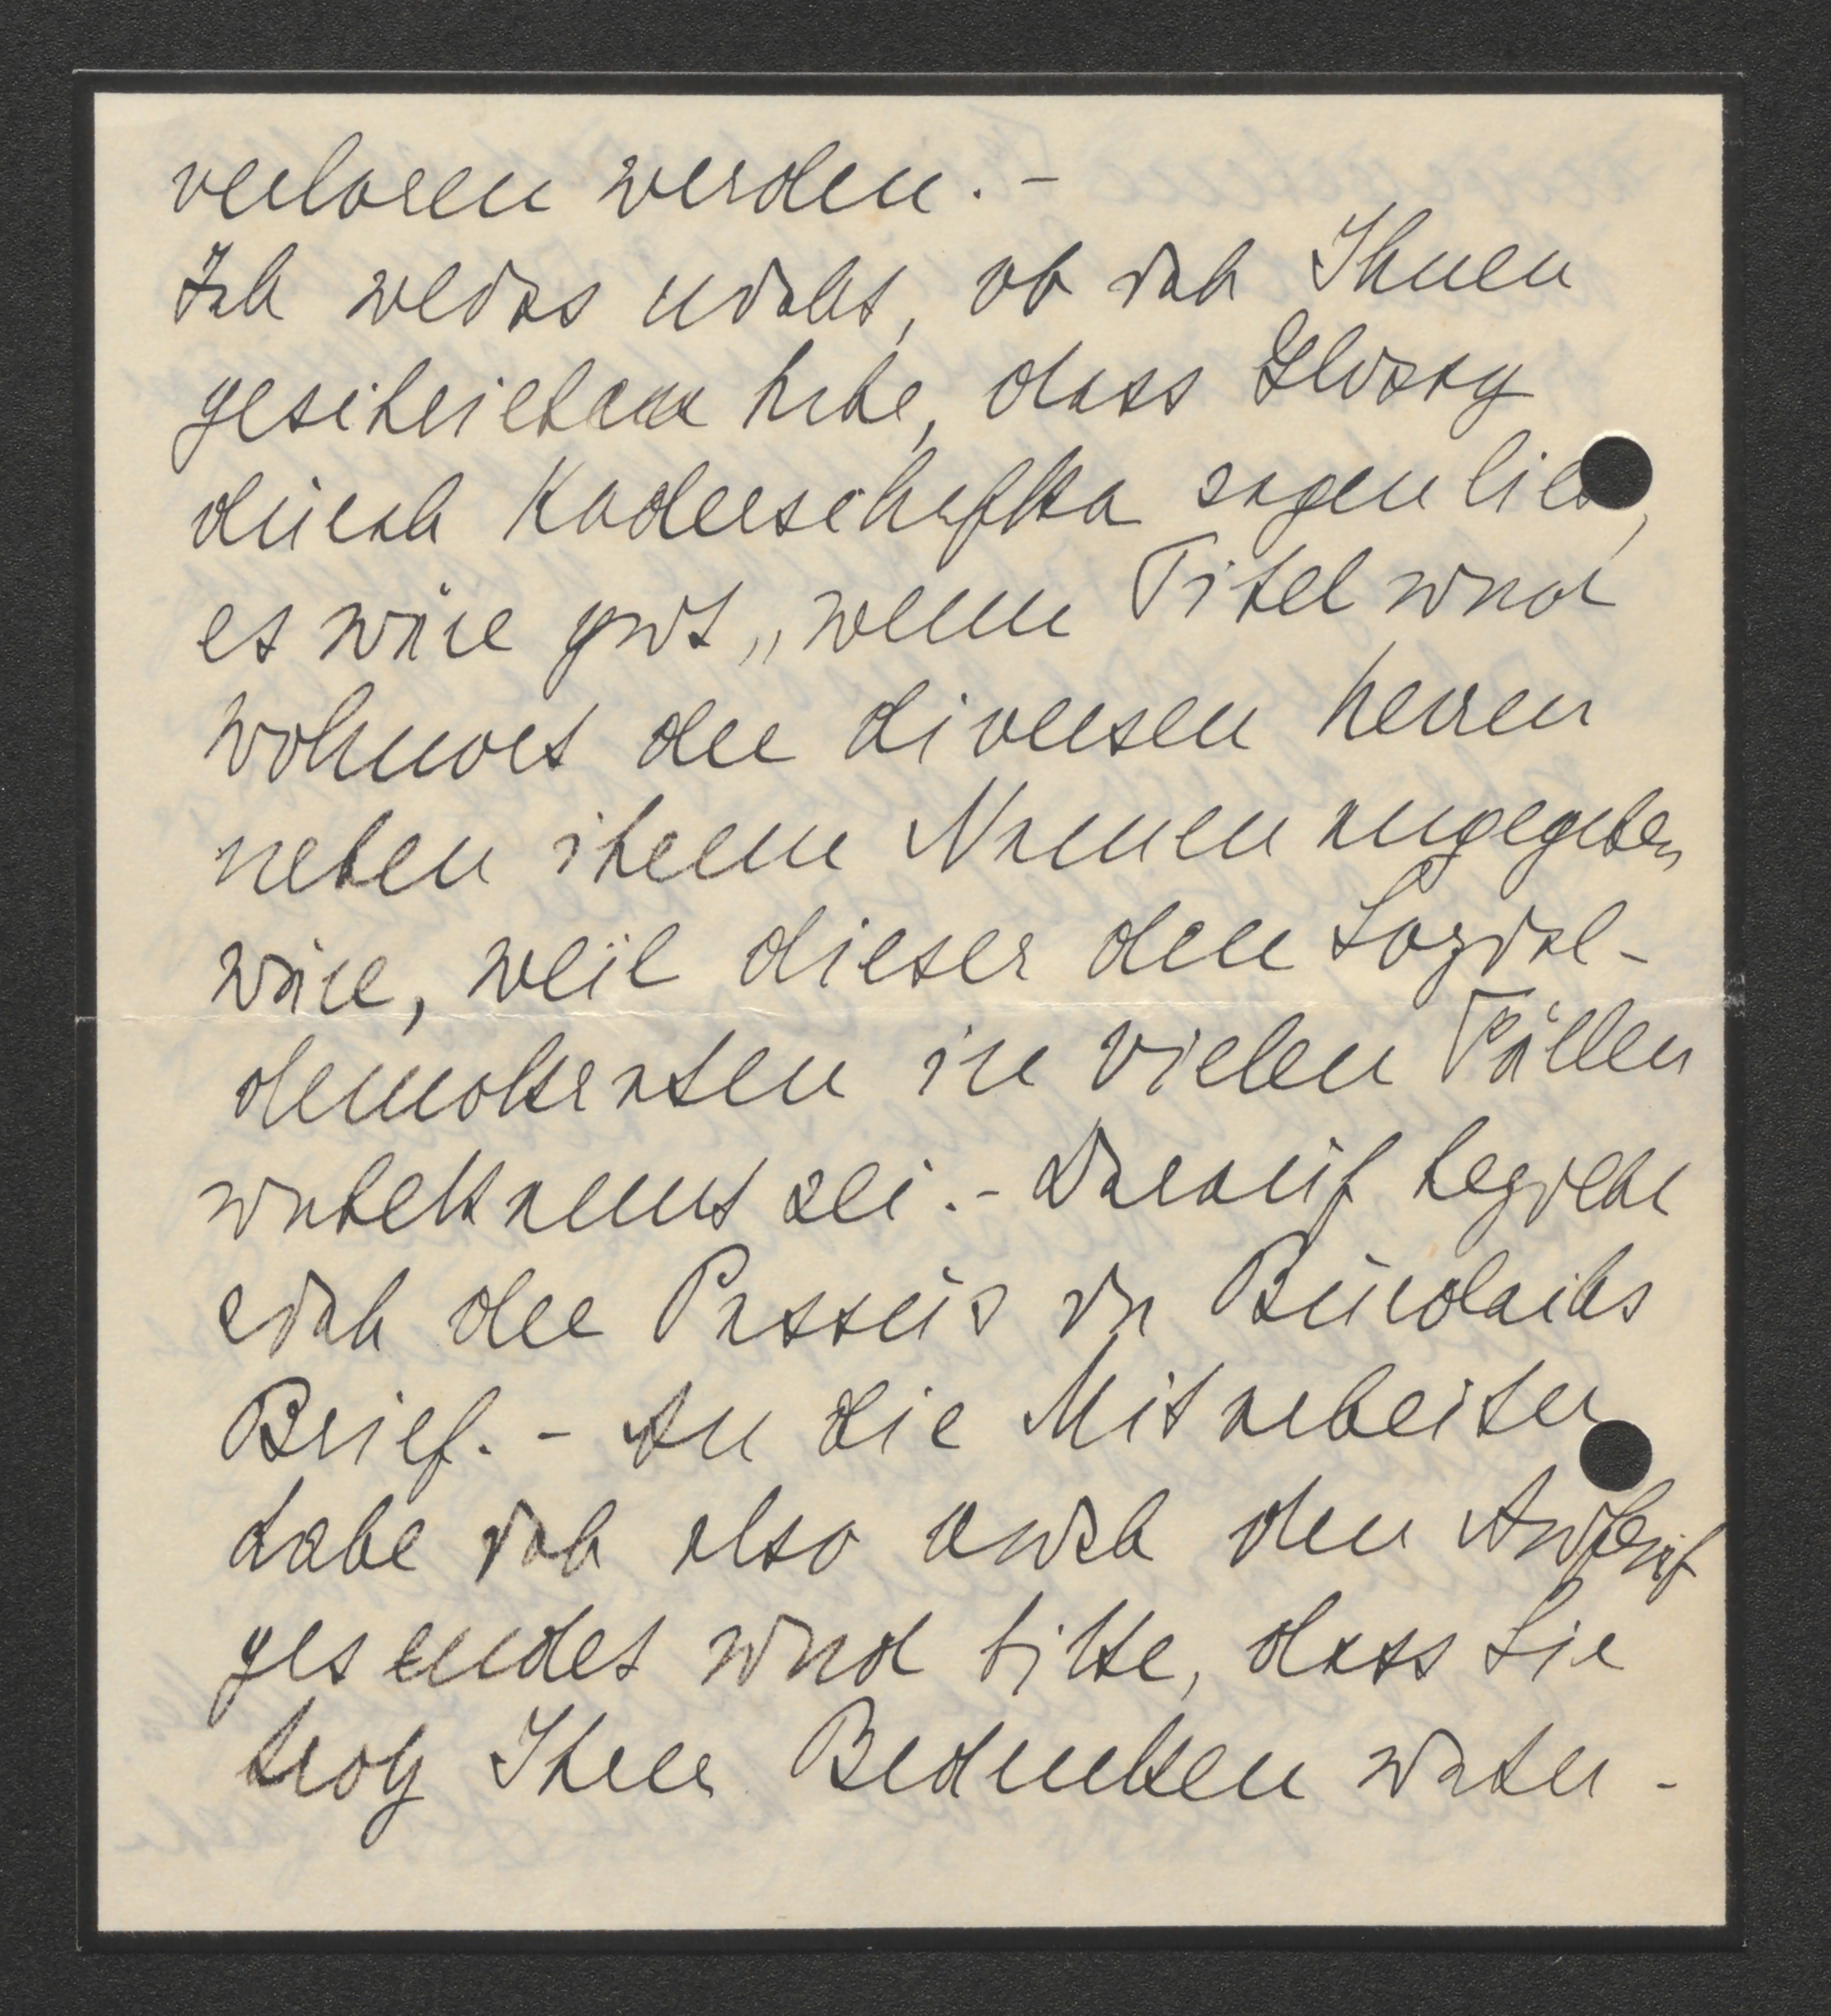 verloren werden. –
Ich weiss nicht, ob ich Ihnen
geschrieben habe, dass Glossy
durch Kaderschafka sagen liess,
es wäre gut, „wenn Titel und
Wohnort der diversen Herren
neben ihrem Namen angegeben
wäre, weil dieser den Sozial-
demokraten in vielen Fällen
unbekannt sei. – Darauf bezieht
sich der Passus in Burckhards
Brief. – An die Mitarbeiter
habe ich also auch den Aufruf
gesendet und bitte, dass Sie
trotz Ihrer Bedenken unter-